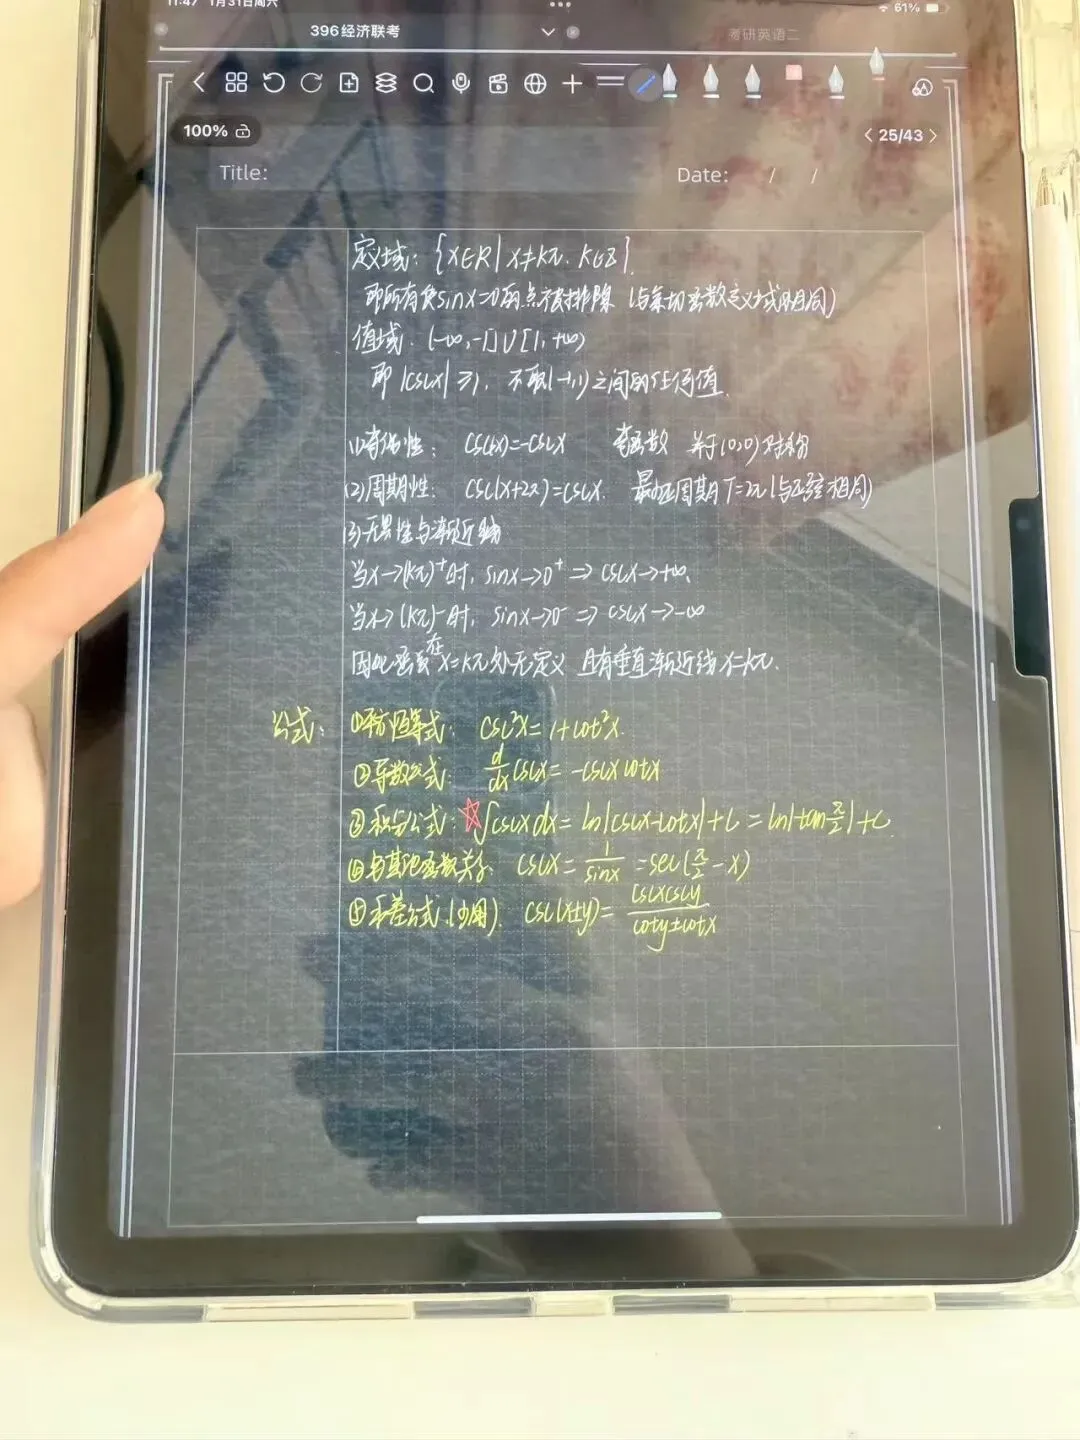 11:47 1月31日周六
61%
396经济联考
考研英语二
100%
< 25/43 >
Title:
Date: / /
定义域：{x∈R | x≠kπ, k∈Z}.
即所有使sinx=0的点被排除（与余切函数定义域相同）
值域：(-∞,-1]∪[1,+∞)
即 |cscx|≥1, 不取(-1,1)之间的任何值.
(1)奇偶性： csc(-x)=-cscx 奇函数 关于(0,0)对称
(2)周期性： csc(x+2π)=cscx. 最小正周期T=2π(与正弦相同)
(3)无界性与渐近线
当x→(kπ)⁺时, sinx→0⁺ ⇒ cscx→+∞.
当x→(kπ)⁻时, sinx→0⁻ ⇒ cscx→-∞
因此函数在x=kπ处无定义 且有垂直渐近线x=kπ.
公式： ①平方恒等式： csc²x=1+cot²x.
②导数公式： d/dx cscx=-cscxcotx
③积分公式： ☆∫cscxdx=ln|cscx-cotx|+C=ln|tan x/2|+C.
④与其他函数关系： cscx=1/sinx=sec(π/2-x)
⑤和差公式.(少用). csc(x±y)=cscxcscy/coty±cotx